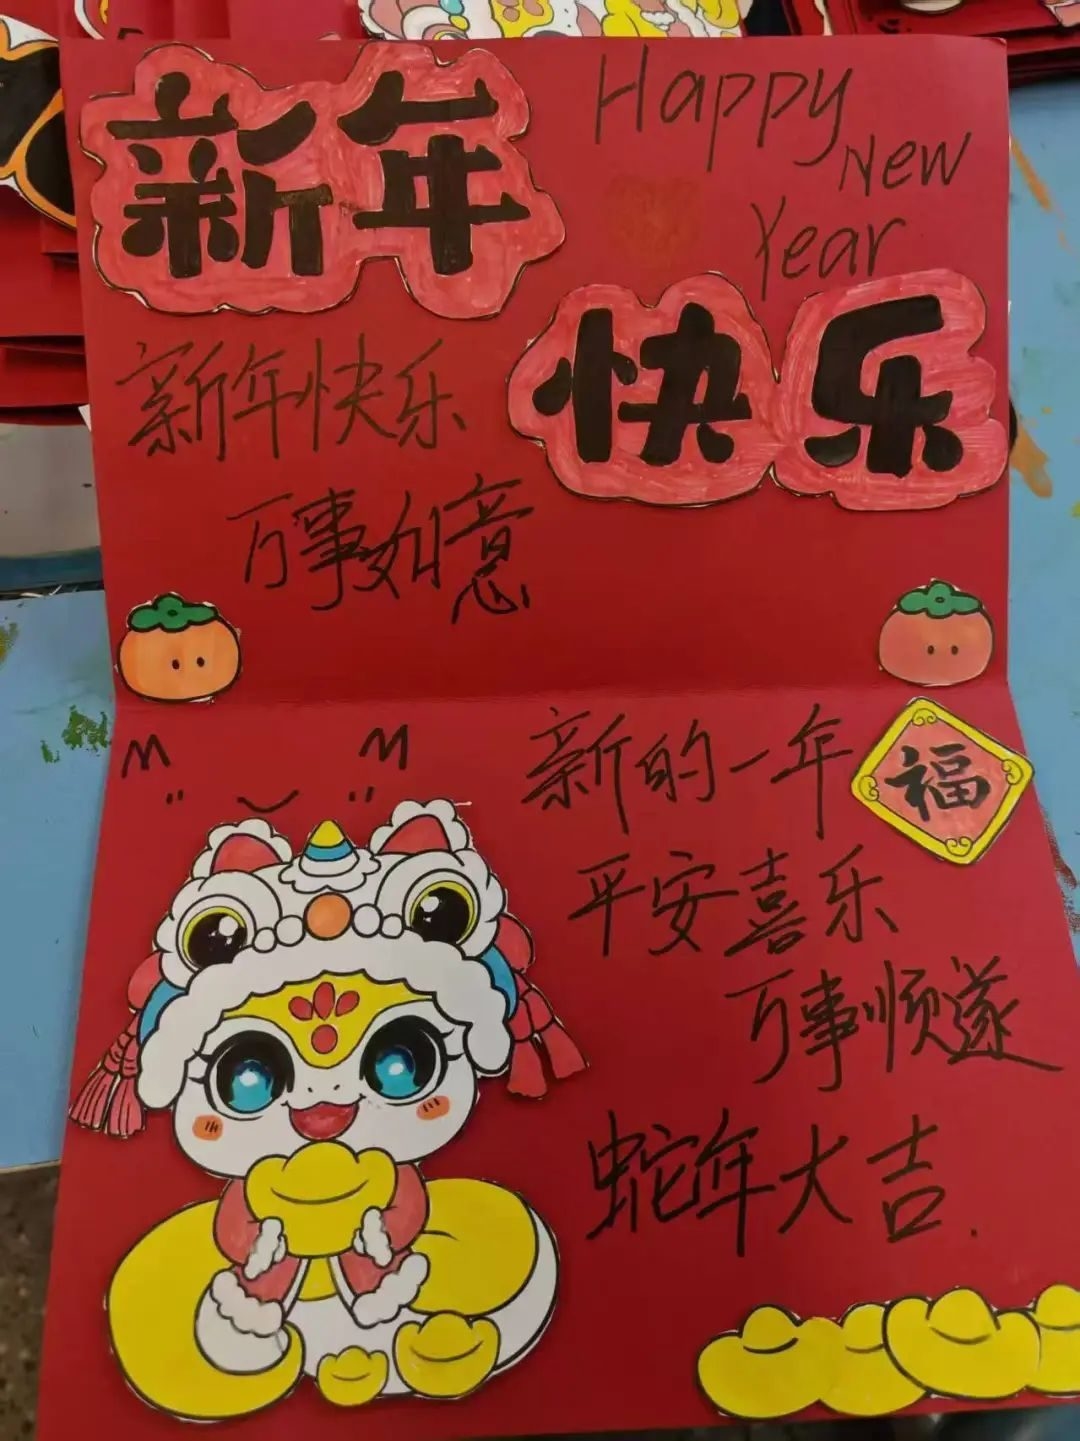 新年
Happy
New
Year
快乐
新年快乐
万事如意
新的一年
福
平安喜乐
万事顺遂
蛇年大吉.